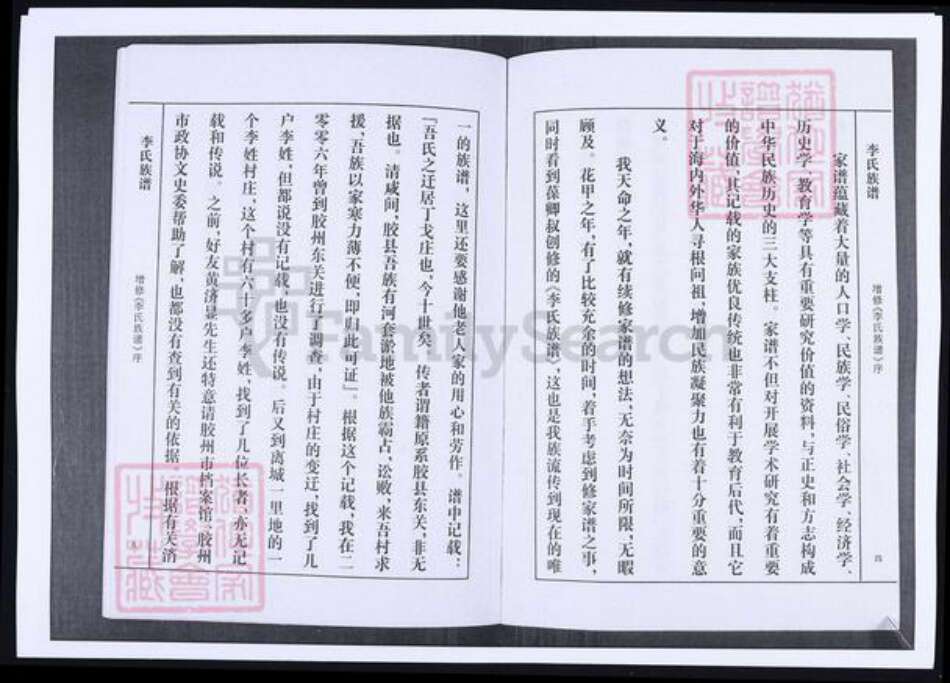 李氏族谱
增修《李氏族谱》序
四
家谱蕴藏着大量的人口学、民族学、民俗学、社会学、经济学、
历史学、教育学等具有重要研究价值的资料,与正史和方志构成
中华民族历史的三大支柱。家谱不但对开展学术研究有着重要
的价值,其记载的家族优良传统也非常有利于教育后代,而且它
对于海内外华人寻根问祖,增加民族凝聚力也有着十分重要的意
义。
我天命之年,就有续修家谱的想法,无奈为时间所限,无暇
顾及。花甲之年,有了比较充余的时间,着手考虑到修家谱之事,
同时看到葆卿叔创修的《李氏族谱》,这也是我族流传到现在的唯
一的族谱,这里还要感谢他老人家的用心和劳作。谱中记载:
「吾氏之迁居丁戈庄也,今十世矣,传者谓籍原系胶县东关,非无
据也。清咸间,胶县吾族有河套淤地被他族霸占,讼败,来吾村求
援,吾族以家寒力薄不便,即归此可证」。根据这个记载,我在二
零零六年曾到胶州东关进行了调查,由于村庄的变迁,找到了几
户李姓,但都说没有记载,也没有传说。后又到离城一里地的一
个李姓村庄,这个村有六十多户李姓,找到了几位长者,亦无记
载和传说。之前,好友黄济显先生还特意请胶州市档案馆、胶州
市政协文史委帮助了解,也都没有查到有关的依据。根据有关消
李氏族谱
增修《李氏族谱》序
FamilySearch